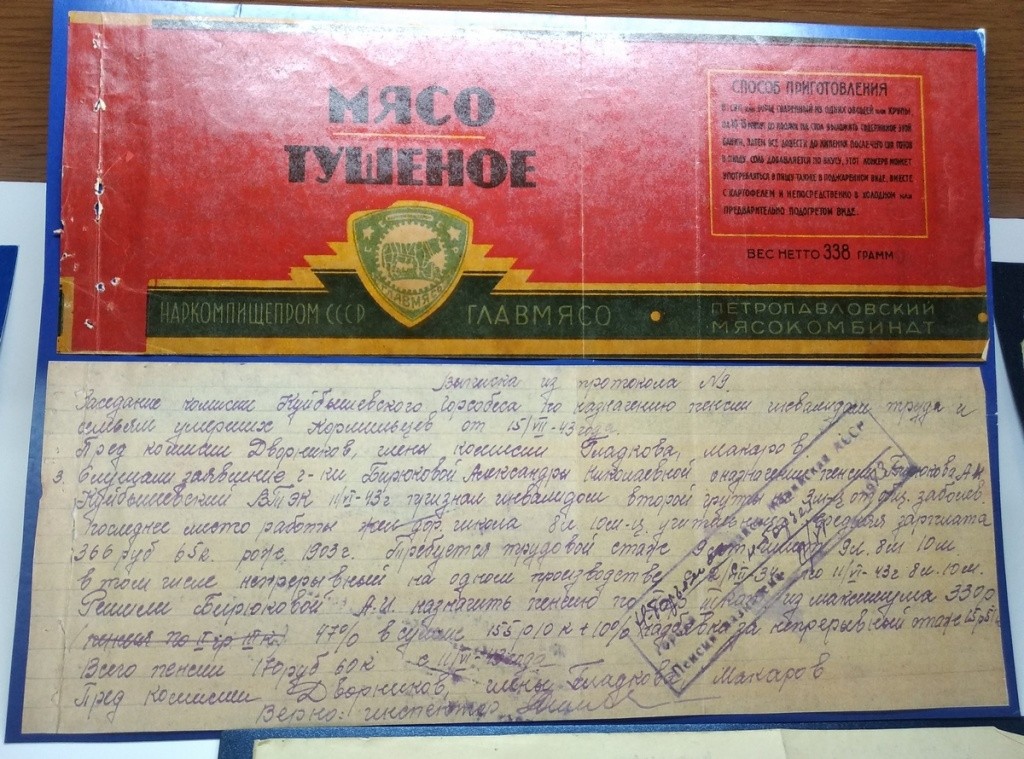 МЯСО
ТУШЕНОЕ
СПОСОБ ПРИГОТОВЛЕНИЯ
В СУП или БОРЩ СВАРЕННЫЙ ИЗ ОДНИХ ОВОЩЕЙ или КРУПЫ,
ЗА 10-15 МИНУТ ДО ПОДАЧИ НА СТОЛ ВЫЛОЖИТЬ СОДЕРЖИМОЕ ЭТОЙ
БАНКИ, ЗАТЕМ ВСЕ ДОВЕСТИ ДО КИПЕНИЯ ПОСЛЕ ЧЕГО СУП ГОТОВ
В ПИЩУ, СОЛЬ ДОБАВЛЯЕТСЯ ПО ВКУСУ, ЭТОТ КОНСЕРВ МОЖЕТ
УПОТРЕБЛЯТЬСЯ В ПИЩУ ТАКЖЕ В ПОДЖАРЕННОМ ВИДЕ, ВМЕСТЕ
С КАРТОФЕЛЕМ И НЕПОСРЕДСТВЕННО В ХОЛОДНОМ или
ПРЕДВАРИТЕЛЬНО ПОДОГРЕТОМ ВИДЕ.
ВЕС НЕТТО 338 ГРАММ
ГЛАВМЯСО
НАРКОМПИЩЕПРОМ СССР
ГЛАВМЯСО
ПЕТРОПАВЛОВСКИЙ
МЯСОКОМБИНАТ
Выписка из протокола №9.
Заседание комисии Куйбышевского Горсобеса по назначению пенсии инвалидам труда и
семьям умерших Кормильцев от 15/VII-43 года.
Пред комисии Дворников, члены комисии Гладкова, Макаров
3. Слушали заявление г-ки Бирюковой Александры Николаевной о назначении пенсии Бирюкова А.Н.
Куйбышевский ВТЭК 11/VI-43г. признан инвалидом второй группы заболев.
Последнее место работы жел дор. школа 8л. 10м-ц. учительница средняя зарплата
366 руб 65к. рожд. 1903г. Требуется трудовой стаж 9 лет имеет 9л. 8м 10м.
в том числе непрерывный на одном производстве по 11/VI-43г 8л. 10м.
Решили Бирюковой А.Н. назначить пенсию по из максимума 330р
(пенсия по II гр III к.) 47% в сумме 155р 10к + 10% надбавка за непрерывный стаж
Всего пенсии 170руб 60к с 11/VI-43 года
Пред комисии Дворников, члены Гладкова Макаров
Верно: инспектор